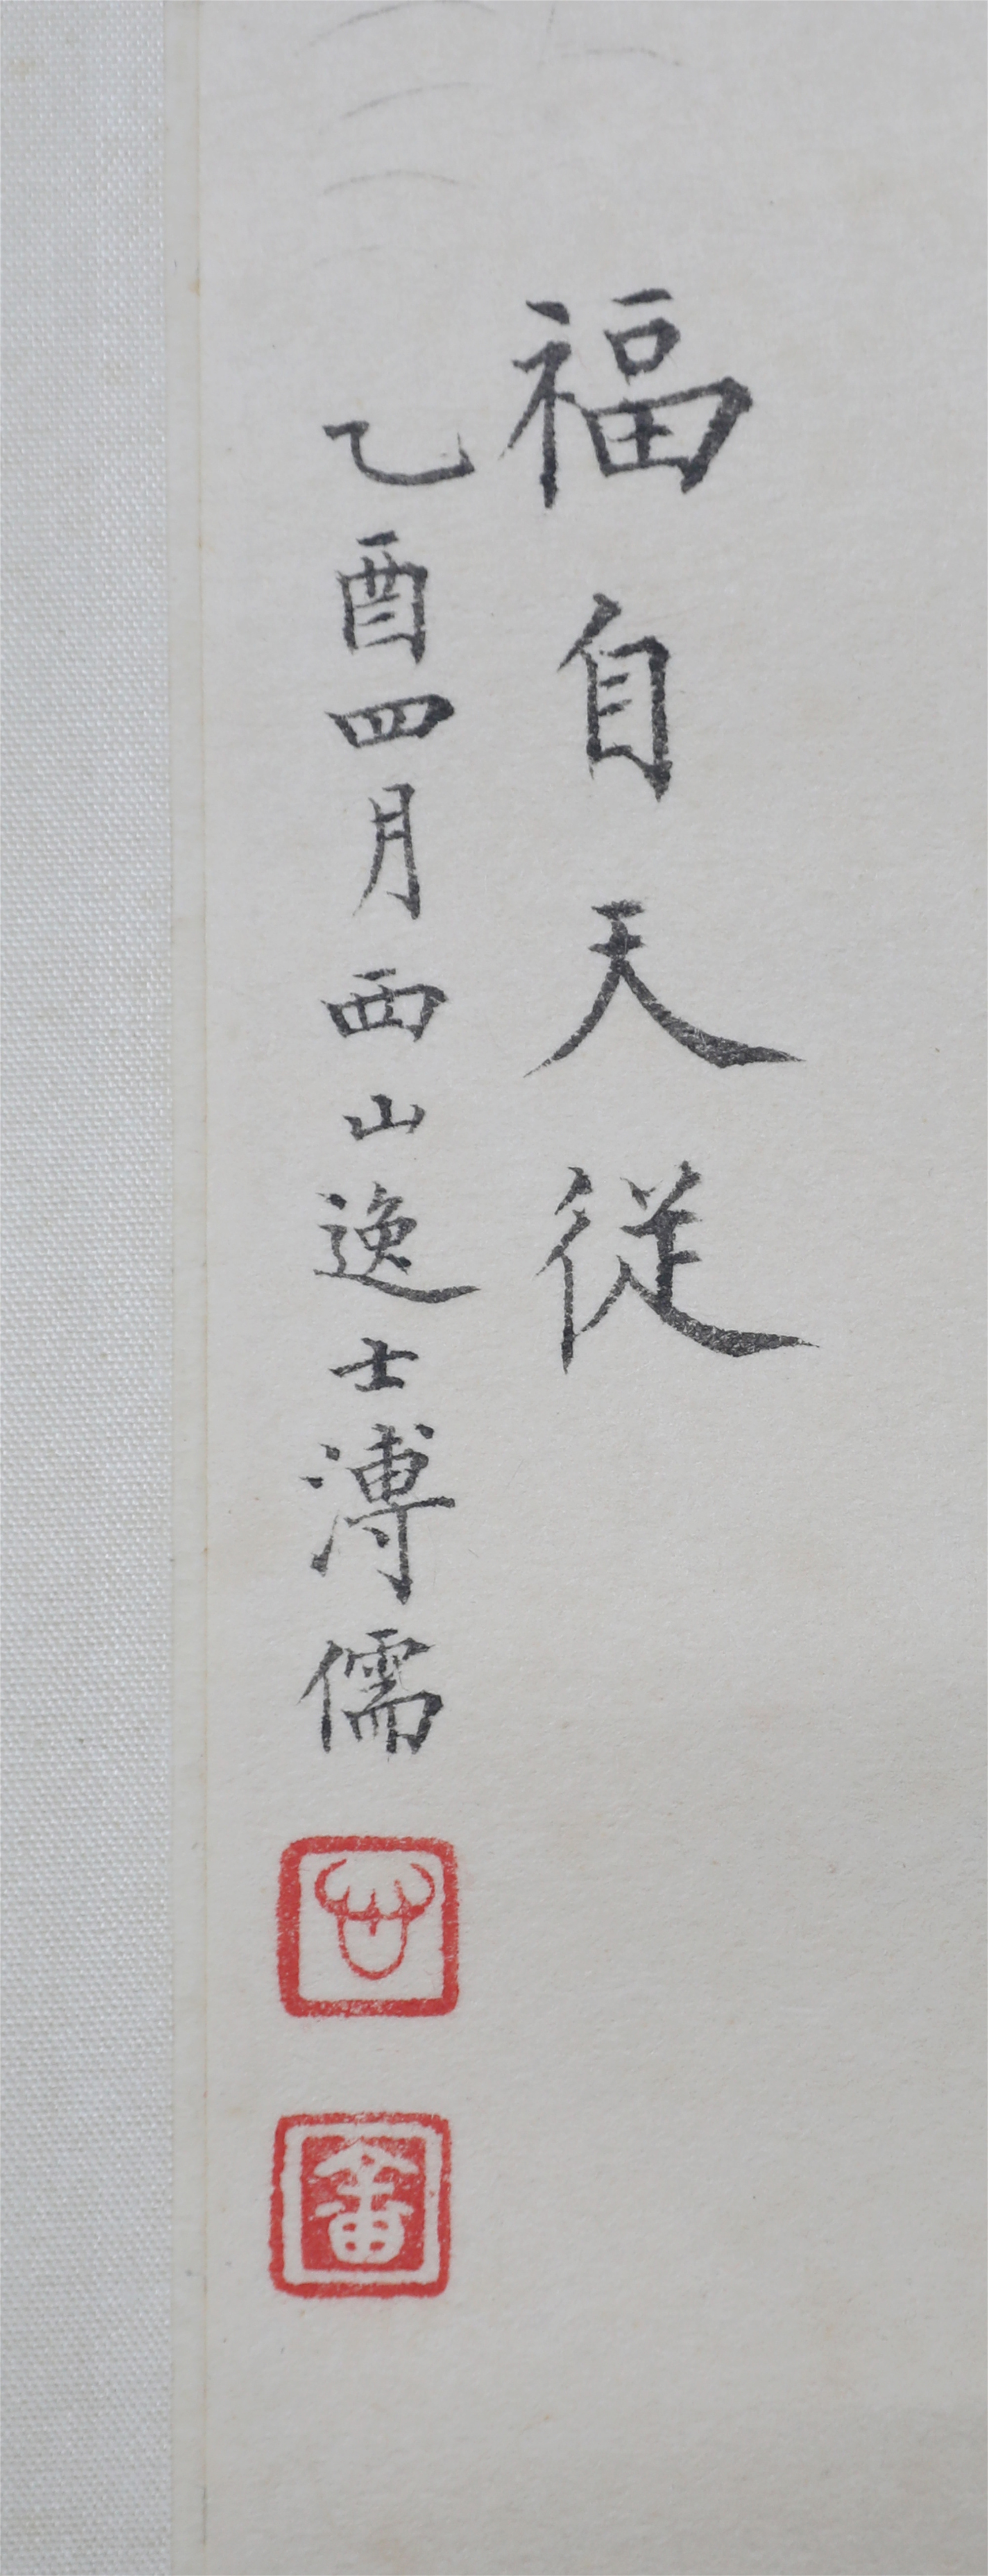 福自天従
乙酉四月西山逸士溥儒